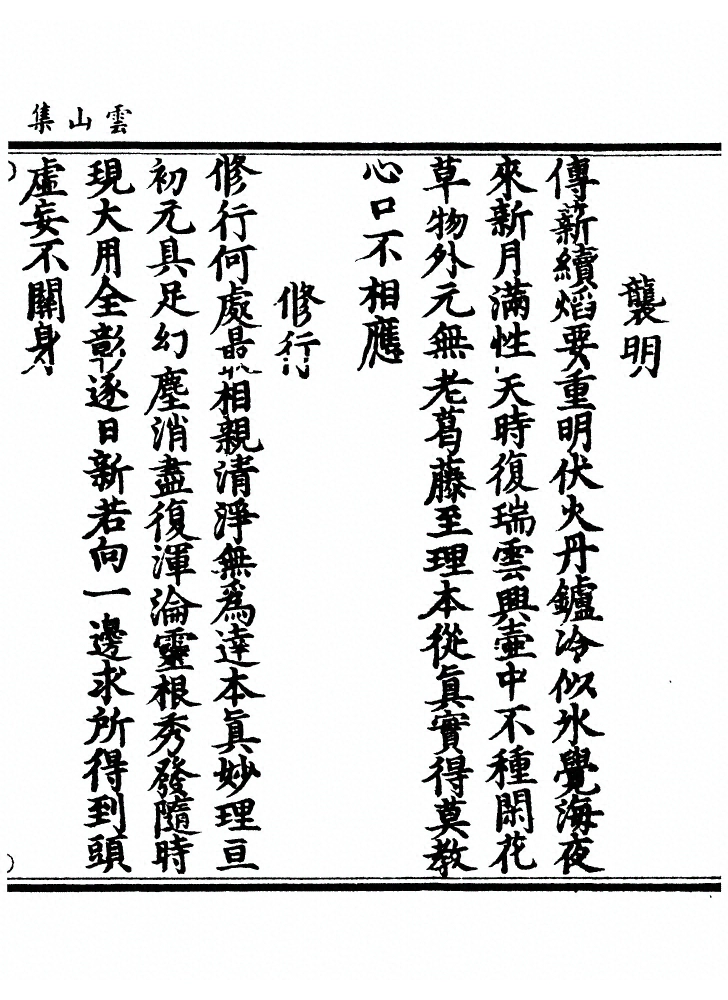 雲山集
襲明
傳薪續焰要重明伏火丹鑪冷似氷覺海夜
來新月滿性天時復瑞雲興壷中不種閑花
草物外元無老葛藤至理本從眞實得莫教
心口不相應
修行
修行何處最相親清淨無爲達本眞妙理亘
初元具足幻塵消盡復渾淪靈根秀發隨時
現大用全彰逐日新若向一邊求所得到頭
虛妄不關身